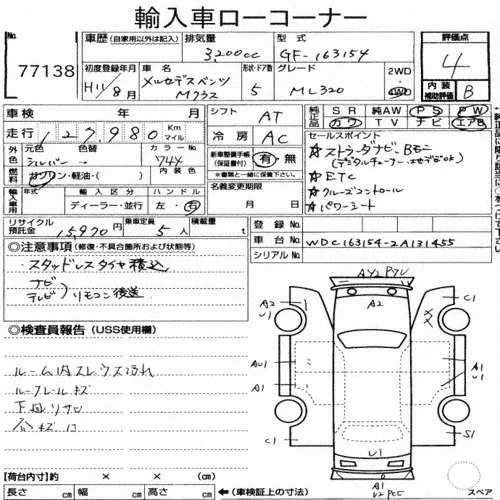 輸入車ローコーナー
No.
77138
車歴 (自家用以外は記入)
排気量
3,200cc
型式
GF-163154
評価点
4
初度登録年月
H11 8月
車名
メルセデスベンツ
Mクラス
形状・ドア数
5
グレード
ML320
2WD
4WD
内装
補助評価
B
車検 年 月
シフト AT
純正品
SR カワ 純AW TV PS ナビ PW エアB
走行 127,980 Km マイル
冷房 AC
セールスポイント
外色
元色 色替
シルバー
カラーNo.
744
内装色
新車整備手帳
(保証書付)
有・無
★書類と一緒に保管下さい。
☆ストラーダナビ Bモニ
☆ETC
☆クルーズコントロール
☆パワーシート
燃料
ガソリン・軽油・( )
名義変更期限
月 日
輸入車用
年式
輸入区分
ディーラー・並行
ハンドル
左・右
リサイクル預託金
15,970円
乗車定員
5人
積載量
t
登録No.
車台No. WDC163154-2A131455
シリアルNo.
◎注意事項 (修復・不具合箇所および状態等)
スタッドレスタイヤ積込
ナビ
テレビ) リモコン後送
◎検査員報告 (USS使用欄)
ルーム内スレウス汚れ
ルーフレールキズ
下廻りサビ
A2
A2
U1
C1
AU1
A1
A1
U1
C1
S1
U1
A1
スペア
【荷台内寸】約 × × (cm)
長さ cm 幅 cm 高さ cm
←(車検証上の寸法)